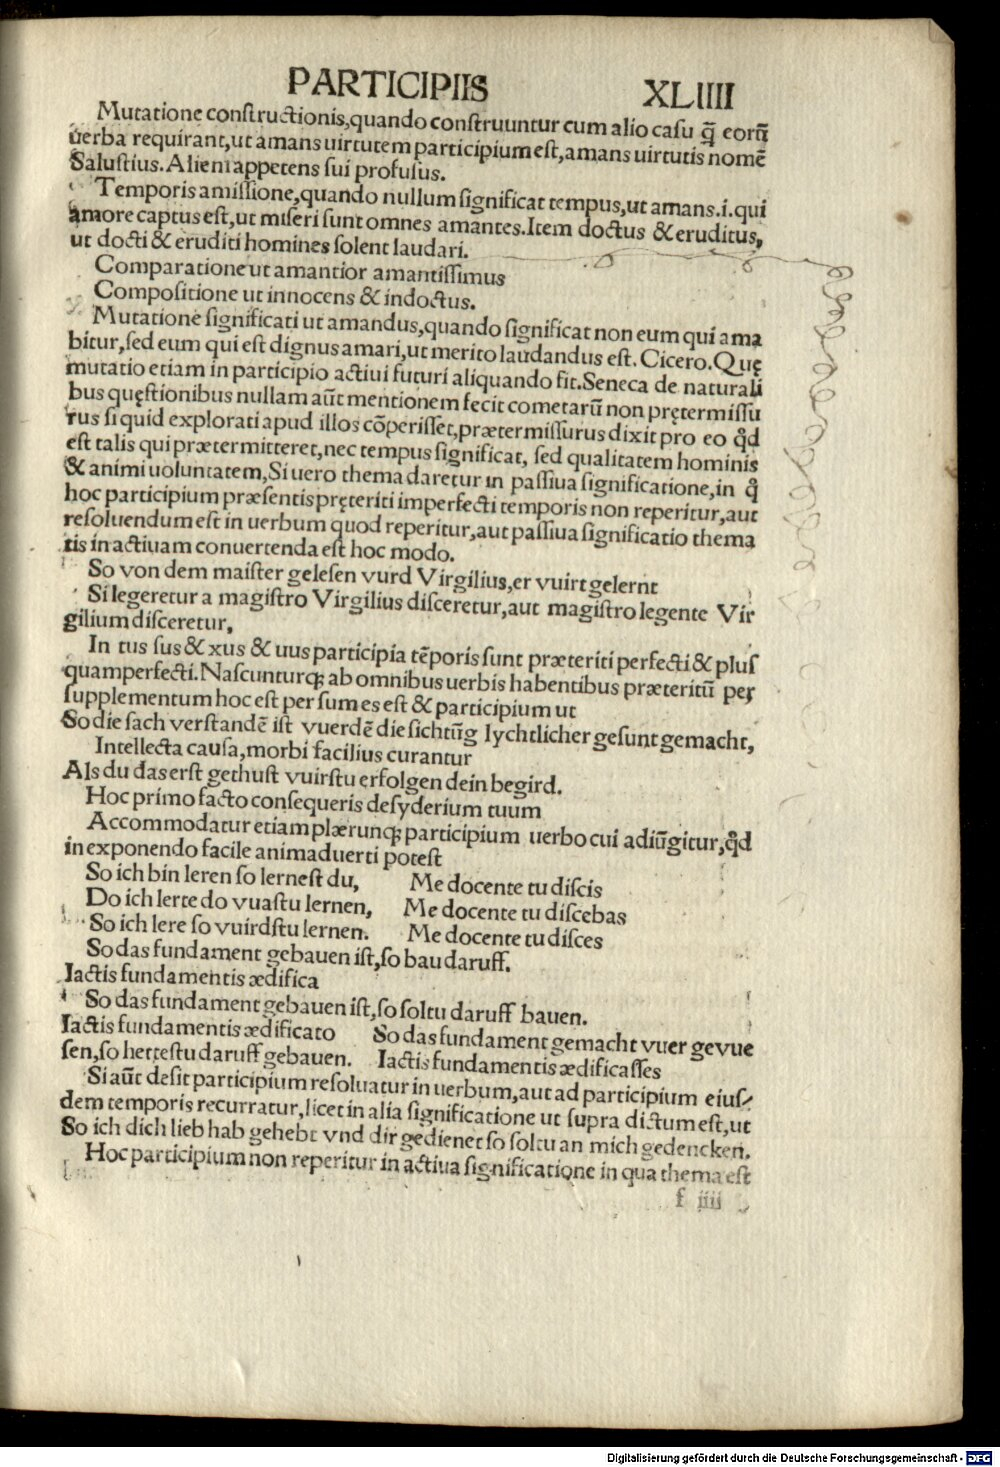 PARTICIPIIS XLIIII
Mutatione constructionis,quando construuntur cum alio casu q̃ eorũ
uerba requirant,ut amans uirtutem participium est,amans uirtutis nomẽ
Salustius.Alieni appetens sui profusus.
Temporis amissione,quando nullum significat tempus,ut amans.i.qui
amore captus est,ut miseri sunt omnes amantes.Item doctus & eruditus,
ut docti & eruditi homines solent laudari.
Comparatione ut amantior amantissimus
Compositione ut innocens & indoctus.
Mutatione significati ut amandus,quando significat non eum qui ama
bitur,sed eum qui est dignus amari,ut merito laudandus est. Cicero.Quę
mutatio etiam in participio actiui futuri aliquando fit.Seneca de naturali
bus quęstionibus nullam aũt mentionem fecit cometarũ non prętermissu
rus si quid explorati apud illos cõperisset,prætermissurus dixit pro eo qď
est talis qui prætermitteret,nec tempus significat, sed qualitatem hominis
& animi uoluntatem,Si uero thema daretur in passiua significatione,in q̊
hoc participium præsentis pręteriti imperfecti temporis non reperitur,aut
resoluendum est in uerbum quod reperitur,aut passiua significatio thema
tis in actiuam conuertenda est hoc modo.
So von dem maister gelesen vurd Virgilius,er vuirt gelernt
Si legeretur a magistro Virgilius disceretur,aut magistro legente Vir
gilium disceretur,
In tus sus & xus & uus participia tẽporis sunt præteriti perfecti & plus
quamperfecti.Nascunturq; ab omnibus uerbis habentibus præteritũ per
supplementum hoc est per sum es est & participium ut
So die sach verstandẽ ist vuerdẽ die sichtũg lychtlicher gesunt gemacht,
Intellecta causa,morbi facilius curantur
Als du das erst gethust vuirstu erfolgen dein begird.
Hoc primo facto consequeris desyderium tuum
Accommodatur etiam plærunq; participium uerbo cui adiũgitur,qď
in exponendo facile animaduerti potest
So ich bin leren so lernest du, Me docente tu discis
Do ich lerte do vuastu lernen, Me docente tu discebas
So ich lere so vuirdstu lernen. Me docente tu disces
So das fundament gebauen ist,so bau daruff.
Iactis fundamentis ædifica
So das fundament gebauen ist,so soltu daruff bauen.
Iactis fundamentis ædificato So das fundament gemacht vuer gevue
sen,so hettestu daruff gebauen. Iactis fundamentis ædificasses
Si aũt desit participium resoluatur in uerbum,aut ad participium eius-
dem temporis recurratur,licet in alia significatione ut supra dictum est,ut
So ich dich lieb hab gehebt vnd dir gedienet so soltu an mich gedencken.
Hoc participium non reperitur in actiua significatione in qua thema est
f iiii
Digitalisierung gefördert durch die Deutsche Forschungsgemeinschaft - DFG